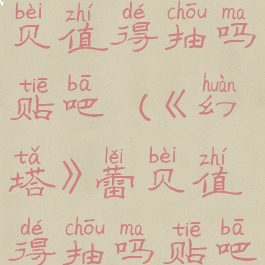 bèi zhí dé chōu ma
贝值得抽吗
tiē bā huàn
贴吧(《幻
tǎ lěi bèi zhí
塔》蕾贝值
dé chōu ma tiē bā
得抽吗贴吧